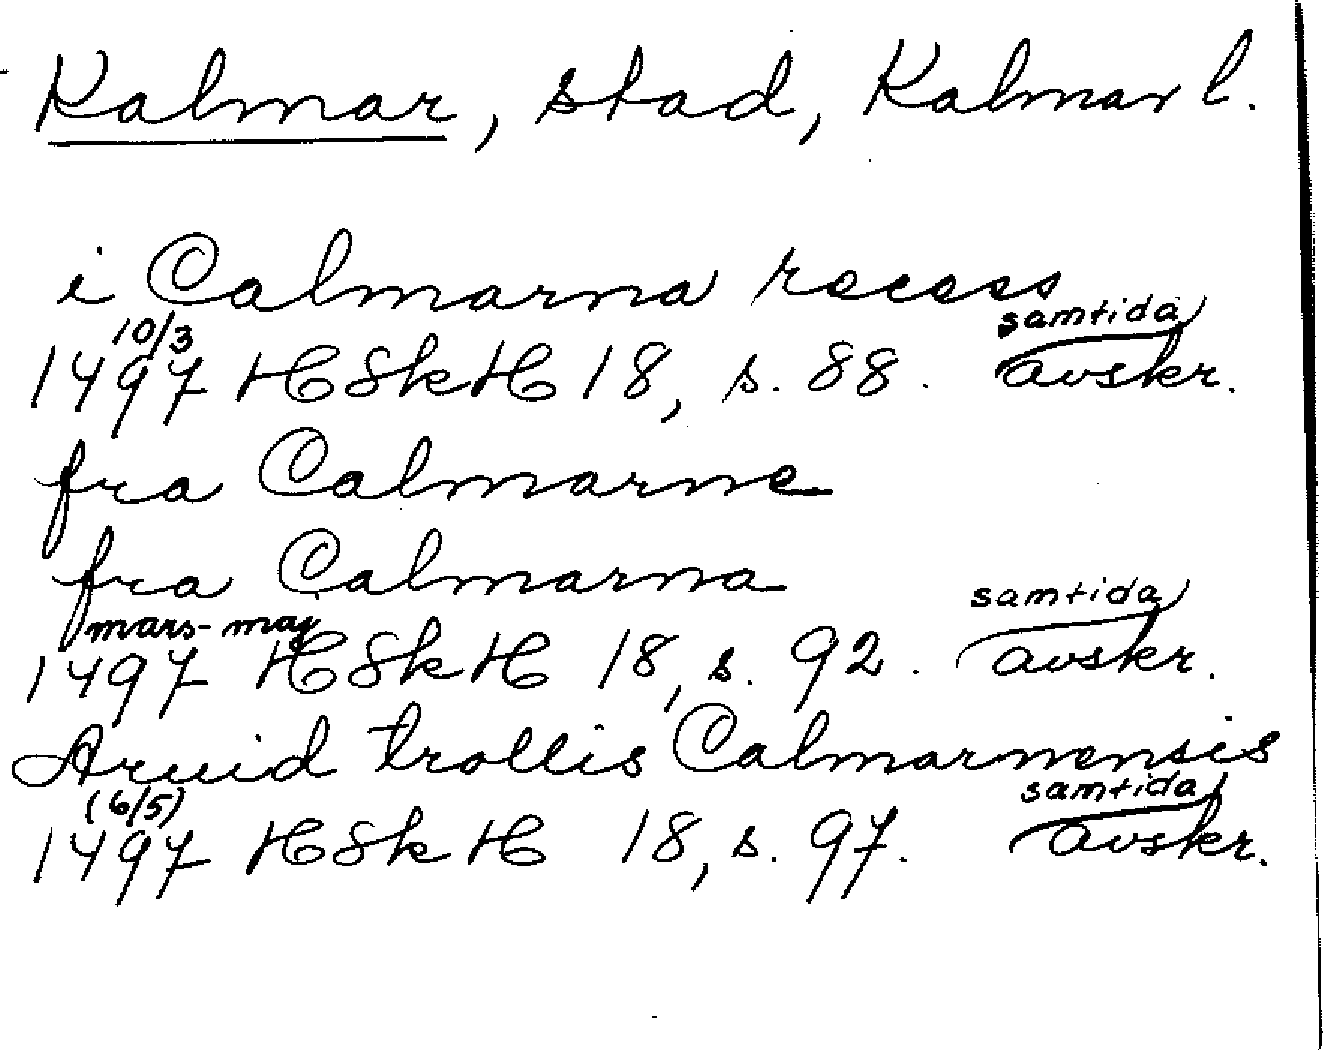 Kalmar, stad, Kalmar l.
i Calmarna recess
10/3
samtida
1497 HSkH 18, s. 88. avskr.
fra Calmarne
fra Calmarna
mars-maj
samtida
1497 HSkH 18, s. 92. avskr.
Aruid trollis Calmarnensis
(6/5)
samtida
1497 HSkH 18, s. 97. avskr.